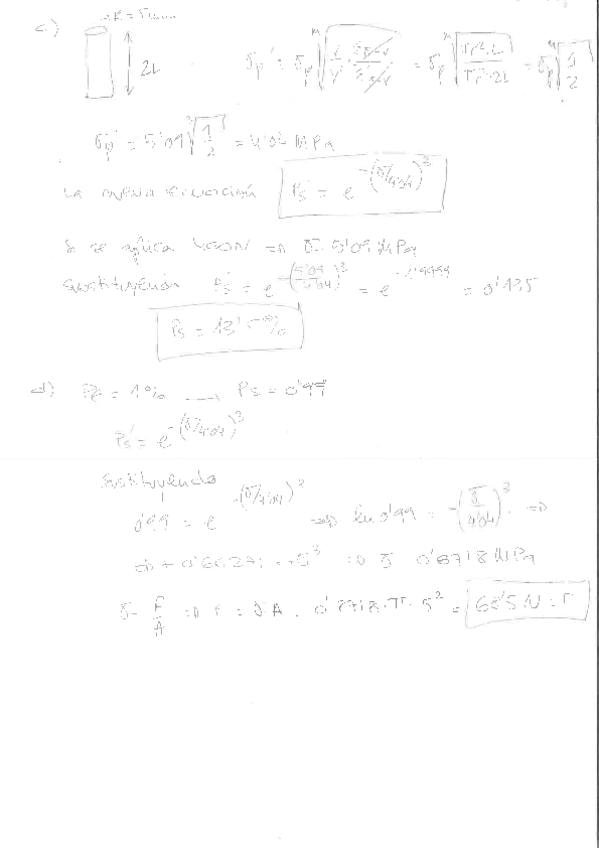 c)
2L
σp' = σp ᵐ√(V/V' ·) = σp ᵐ√(πr²·L / πr²·2L) = σp ᵐ√(1/2)
σp' = 5'09 ³√(1/2) = 4'04 MPa
La nueva ecuación Ps' = e^-(σ/4'04)^3
Si se aplica 400N ⇒ σ = 5'09 MPa
Sustituyendo Ps' = e^-(5'09/4'04)^3 = e^-1'9999 = 0'135
Ps = 13'5%
d) = 1% → Ps = 0'99
Ps' = e^-(σ/4'04)^3
Sustituyendo
0'99 = e^-(σ/4'04)^3 ⇒ ln 0'99 = -(σ/4'04)^3 ⇒
⇒ σ^3 ⇒ σ 0'8718 MPa
σ = F/A ⇒ F = σ·A = 0'8718·π·5² = 68'5 N = F